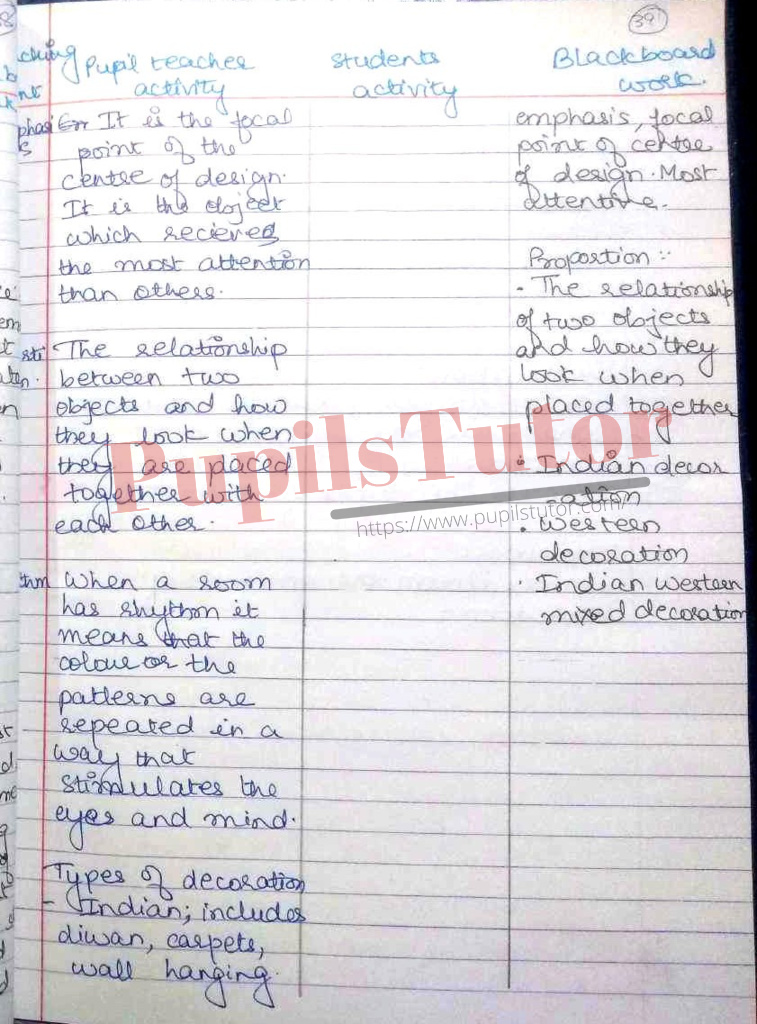 39
ching Pupil teacher activity
students activity
Blackboard work.
phasis It is the focal
point of the
centre of design.
It is the object
which recieves
the most attention
than others.
The relationship
between two
objects and how
they look when
they are placed
together with
each other.
thm When a room
has rhythm it
means that the
colour or the
patterns are
repeated in a
way that
stimulates the
eyes and mind.
Types of decoration
- Indian; includes
diwan, carpets,
wall hanging.
emphasis, focal
point of centre
of design. Most
attentive.
Proportion :-
- The relationship
of two objects
and how they
look when
placed together
• Indian decor
-ation
• Western
decoration
• Indian western
mixed decoration
PupilsTutor
https://www.pupilstutor.com/